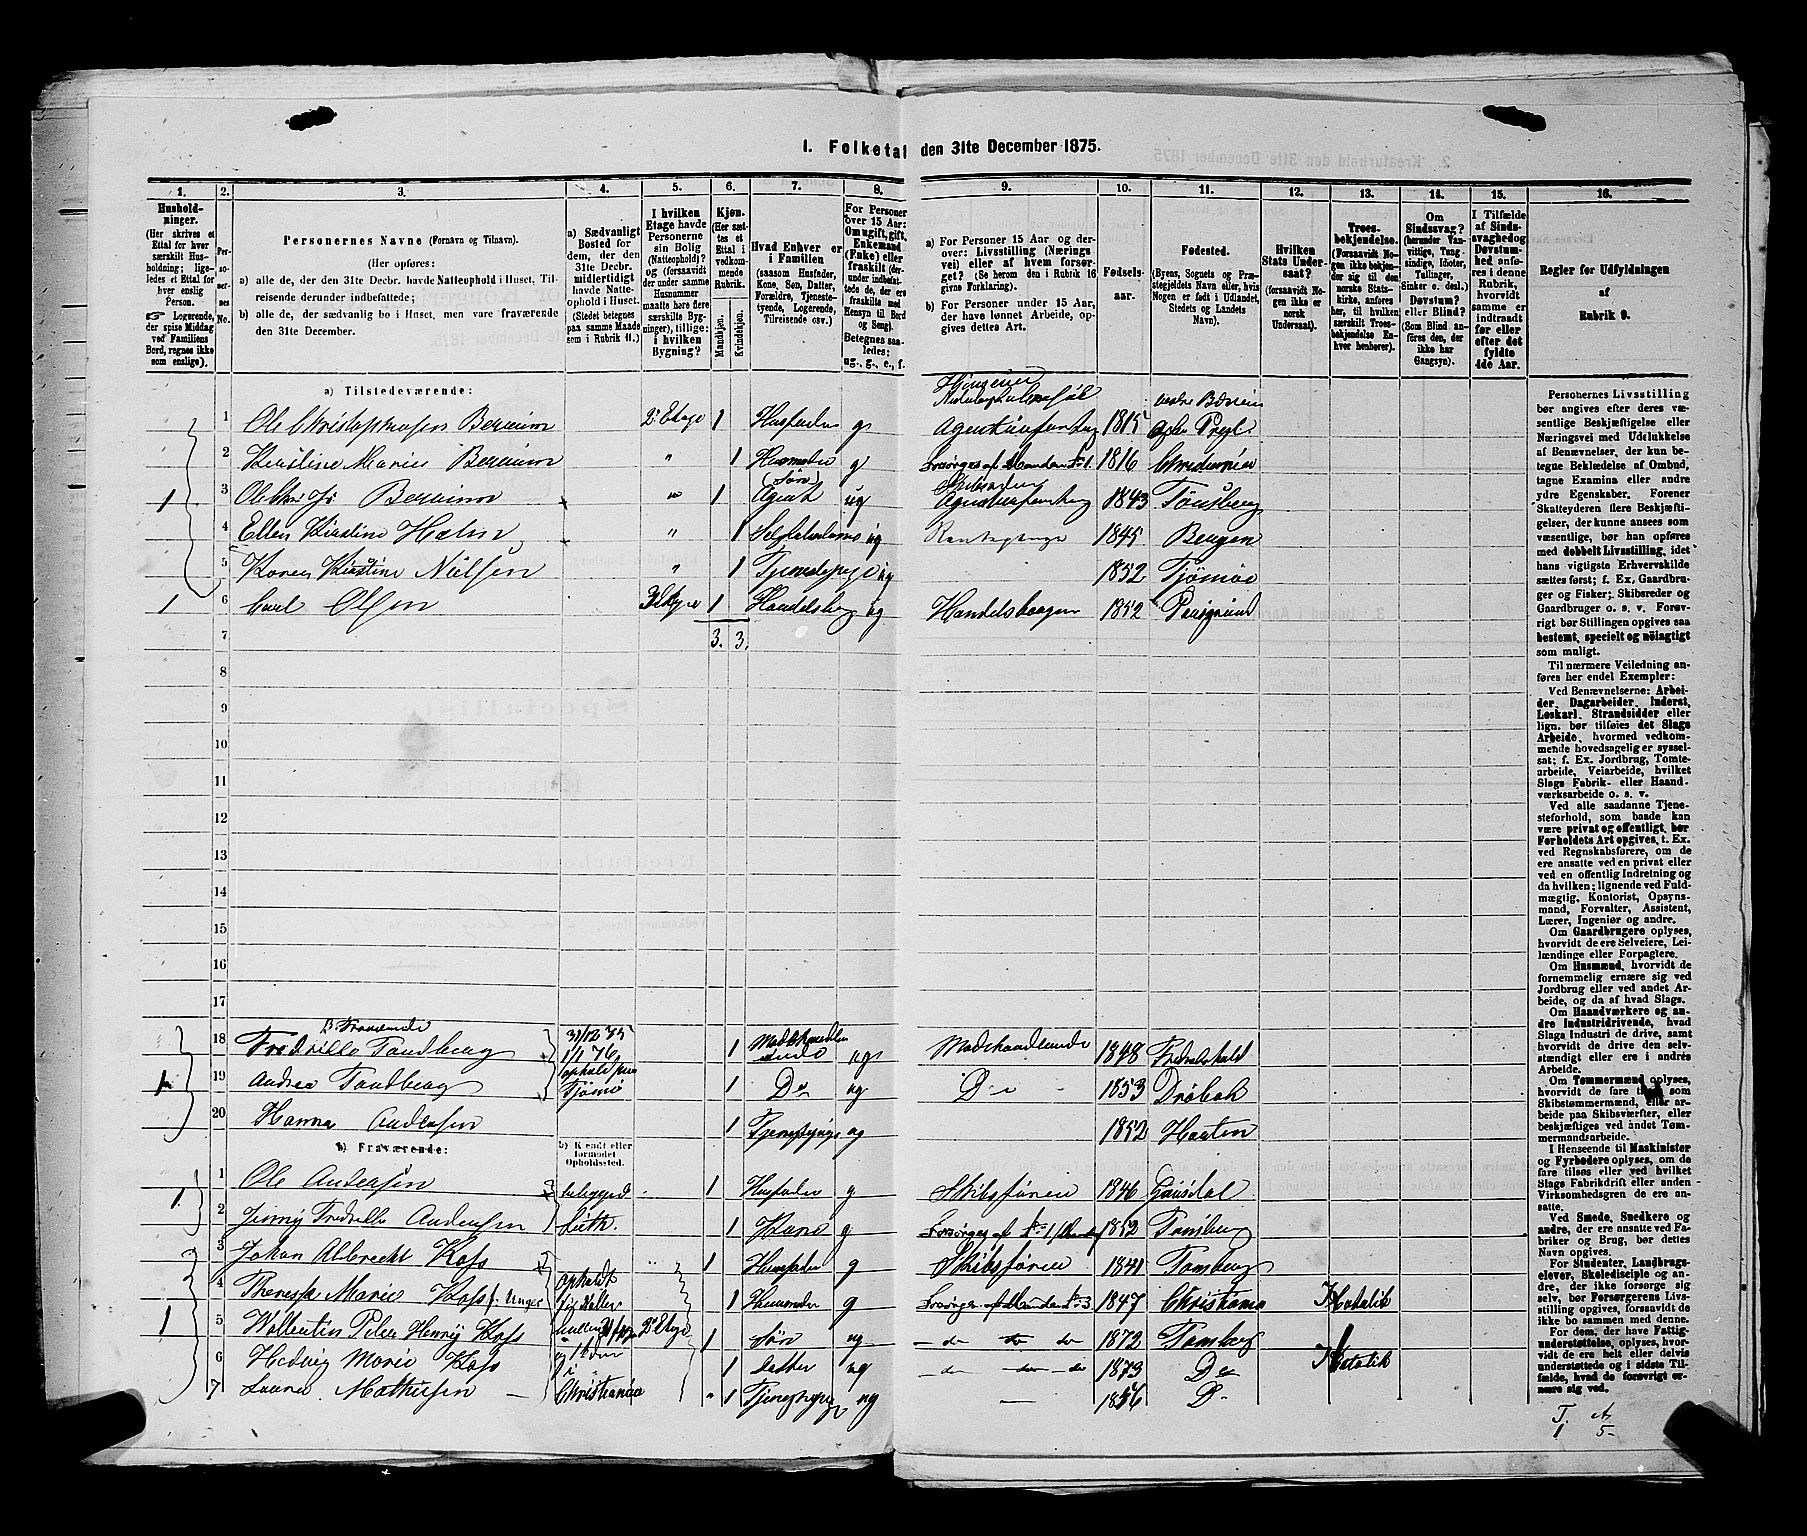 I. Folketa den 31te December 1875.
1. 2. 3. 4. 5. 6. 7. 8. 9. 10. 11. 12. 13. 14. 15. 16.
Hushold-
ninger.
(Her skrives et
Ettal for hver
særskilt Hus-
holdning; lige-
ledes et Ettal for
hver enslig
Person.
Logerende,
der spise Middag
ved Familiens
Bord, regnes ikke
som enslige).
Per-
so-
ner-
nes
No.
Personernes Navne (Fornavn og Tilnavn).
(Her opføres:
a) alle de, der den 31te Decbr. havde Natteophold i Huset, Til-
reisende derunder indbefattede;
b) alle de, der sædvanlig bo i Huset, men vare fraværende
den 31te December.
a) Sædvanligt
Bosted for
dem, der den
31te Decbr.
midlertidigt
havde Natte-
ophold i Huset.
(Stedet betegnes
paa samme Maade
som i Rubrik 11.)
I hvilken
Etage havde
Personerne
sin Bolig
(Natteophold)?
og (forsaavidt
der under samme
Husnummer
maatte høre flere
særskilte Byg-
ninger), tillige:
i hvilken
Bygning?
Kjøn.
(Her sæt-
tes et
Ettal i
vedkom-
mende
Rubrik.
Mandkjøn.
Kvindekjøn.
Hvad Enhver er
i Familien
(saasom Husfader,
Kone, Søn, Datter,
Forældre, Tjeneste-
tyende, Logerende,
Tilreisende osv.)
For Personer
over 15 Aar:
Om ugift, gift,
Enkemand
(Enke) eller
fraskilt (der-
under indbefat-
tede de, der ere
fraskilte med
Hensyn til Bord
og Seng).
Betegnes saa-
ledes:
ug., g., e., f.
a) For Personer 15 Aar og der-
over: Livsstilling (Nærings
vei) eller af hvem forsør-
get? (Se herom den i Rubrik 16
givne Forklaring).
b) For Personer under 15 Aar,
der have lønnet Arbeide, op-
gives dettes Art.
Fødsels-
aar.
Fødested.
(Byens, Sognets og Præ-
stegjeldets Navn eller, hvis
Nogen er født i Udlandet,
Stedets og Landets
Navn).
Hvilken
Stats Under-
saat?
(forsaavidt No-
gen ikke er
norsk
Undersaat).
Troes-
bekjendelse.
(Forsaavidt No-
gen ikke bekjen-
der sig til den
norske Stats-
kirke, anføres
her, til hvilken
særskilt Troes-
bekjendelse En-
hver henhører).
Om
Sindssvag?
(herunder Van-
vittige, Tung-
sindige, Idioter,
Tullinger,
Sinker o. desl.)
Døvstum?
eller Blind?
(Som Blind an-
føres den, der
ikke har
Gangsyn).
I Tilfælde
af Sinds-
svaghed og
Døvstum-
hed anfø-
res i denne
Rubrik,
hvorvidt
samme er
indtraadt
før eller
efter det
fyldte
4de Aar.
Regler for Udfyldningen
af
Rubrik 9.
a) Tilstedeværende:
1 Ole Christophersen Bereium 2. Etage 1 Husfader g 1815
2 Kirstine Marie Bereium " 1 Husmoder g Forsørges af Manden No 1. 1816 Christiania
1 3 Ole Chr Jr Bereium " 1 Søn Agent ug 1843 Tønsberg
4 Ellen Kirstine Holm " 1 ug 1845 Bergen
5 Karen Kirstine Nielsen " 1 Tjenestepige ug 1852 Tjømø
1 6 Carl Olsen 1 ug 1852
7 3. 3.
8
9
10
11
12
13
14
15
16
17
18 Fredrikke Tandberg 31/12 75 1 ug Modehandlende 1848 Fredrikshald
1/1 76
1 19 Andrea Tandberg Tjømø 1 Do ug Do 1853 Drøbak
20 Hanna Andersen 1 ug 1852 Horten
b) Fraværende:
b) Kjendt eller
formodet
Opholdssted.
1 1 Ole Andersen 1 Husfader g Skibsfører 1846 Gausdal
2 Jenny Fredrikke Andersen 1 Kone g 1852 Tønsberg
3 Johan Albrecht Koss 1 Husfader g Skibsfører 1841 Tønsberg
4 Therese Marie Koss f. Unger 1 Husmoder g Forsørges af Manden No 3 1847 Christiania Katolik
1 5 Wallentin Peter Henry Koss 2. Etage 1 Søn ug do do do 1872 Tønsberg
6 Hedvig Marie Koss 1 Datter ug do do do 1873 Do Katolik
7 Laura Mathisen Christiania 1 Tjenestepige ug 1856 D
Personernes Livsstilling
bør angives efter deres væ-
sentlige Beskjæftigelse eller
Næringsvei med Udelukkelse
af Benævnelser, der kun be-
tegne Beklædelse af Ombud,
tagne Examina eller andre
ydre Egenskaber. Forener
Skatteyderen flere Beskjæfti-
gelser, der kunne ansees som
væsentlige, bør han opføres
med dobbelt Livsstilling, idet
hans vigtigste Erhvervskilde
sættes først; f. Ex. Gaardbru-
ger og Fisker; Skibsreder og
Gaardbruger o. s. v. Forøv-
rigt bør Stillingen opgives saa
bestemt, specielt og nöiagtigt
som muligt.
Til nærmere Veiledning an-
føres her endel Exempler:
Ved Benævnelserne: Arbei-
der, Dagarbeider, Inderst,
Løskarl, Strandsidder eller
lign. bør tilføies det Slags
Arbeide, hvormed vedkom-
mende hovedsagelig er syssel-
sat; f. Ex. Jordbrug, Tomte-
arbeide, Veiarbeide, hvilket
Slags Fabrik- eller Haand-
værksarbeide o. s. v.
Ved alle saadanne Tjene-
steforhold, som baade kan
være privat og offentligt, bør
Forholdets Art opgives, t. Ex.
ved Regnskabsførere, om de
ere ansatte ved en privat eller
ved en offentlig Indretning og
da hvilken; lignende ved Fuld-
mægtig, Kontorist, Opsyns-
mand, Forvalter, Assistent,
Lærer, Ingeniør og andre.
Om Gaardbrugere oplyses,
hvorvidt de ere Selveiere, Lei-
lændinge eller Forpagtere.
Om Husmænd, hvorvidt de
fornemmelig ernære sig ved
Jordbrug eller ved andet Ar-
beide, og da af hvad Slags.
Om Haandværkere og an-
dre Industridrivende, hvad
Slags Industri de drive, samt
hvorvidt de drive den selv-
stændigt eller ere i andres
Arbeide.
Om Tømmermænd oplyses,
hvorvidt de fare tilsøs som
Skibstømmermænd, eller ar-
beide paa Skibsværfter, eller
beskjæftiges ved andet Tøm-
mermandsarbeide.
I Henseende til Maskinister
og Fyrbødere oplyses, om de
fare tilsøs eller ved hvilket
Slags Fabrikdrift eller anden
Virksomhedsgren de ere an-
satte.
Ved Smede, Snedkere og
andre, der ere ansatte ved Fa-
briker og Brug, bør dettes
Navn opgives.
For Studenter, Landbrugs-
elever, Skoledisciple og an-
dre, der ikke forsørge sig
selv, bør Forsørgerens Livs-
stilling opgives, forsaavidt de
ikke bo sammen med denne.
For dem, der have Fattig-
understøttelse, oplyses, hvor-
vidt de ere helt eller delvis
understøttede og i sidste Til-
fælde, hvad de forøvrigt er-
nære sig ved.
1 5